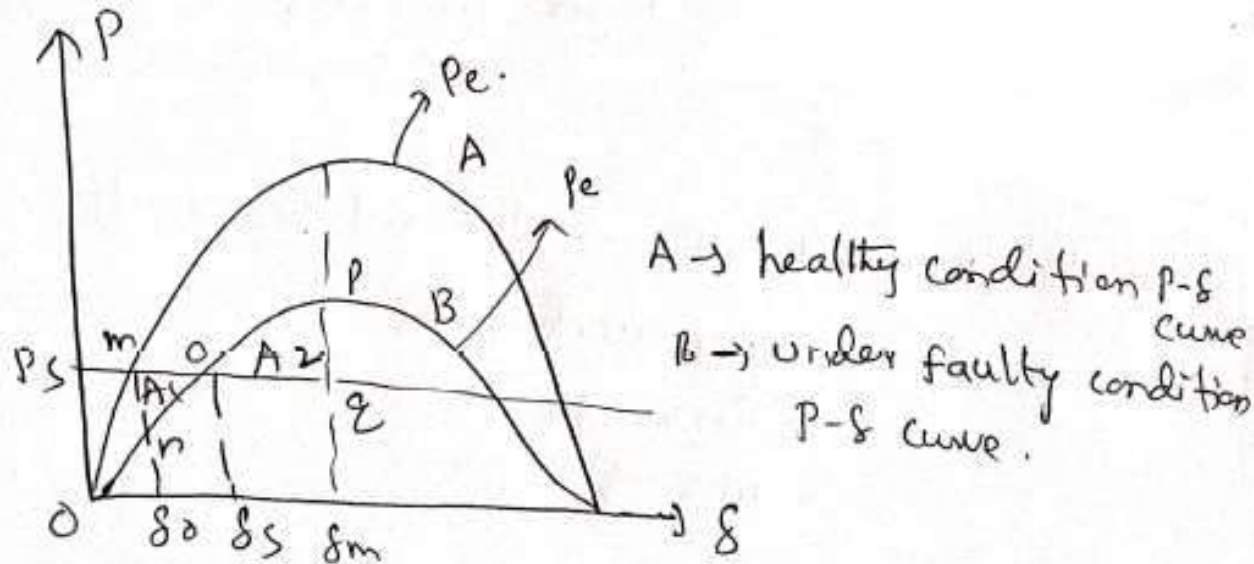 P
Pe.
A
Pe
P
B
m
o
A2
Ps
A1
q
n
O
δo
δs
δm
δ
A → healthy condition P-δ
curve
B → under faulty condition
P-δ curve.